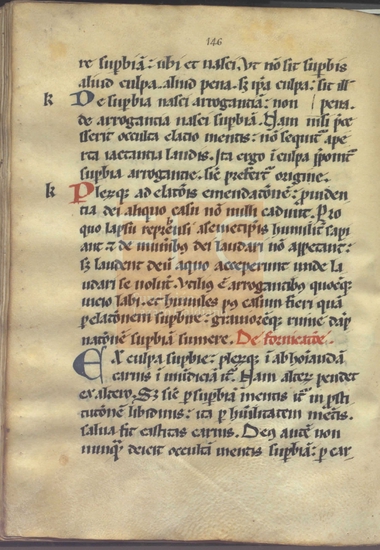 146
re supbiā: ubi et nasci. Ut nō sit supbis
aliud culpa. aliud pena. sʒ ipa culpa: sit ill
k De supbia nasci arrogantiā: non pena.
de arrogantia nasci supbiā. Nam nisi pces
serit occulta elatio mentis: nō sequit ape
rta iactantia laudis. Ita ergo ī culpa pponit
supbia arrogantie. sic prefert origine.
k Pleriq ad elatōnis emendatōnē: puiden
tia dei aliquo casu nō nulli cadunt. Pro
quo lapsu reprehensi a semetipis humilit sapi
ant et de munibus dei laudari nō appetant:
sʒ laudent deū a quo acceperunt unde la
udari se volūt. Utilius ē arrogantibus quocūq
vicio labi. et humiles p casum fieri quā
p elatōnem supbire: gravioreq ruine dāp
natōnē supbiā sumere. De fornicatōe.
Ex culpa supbie: pleruq ī abhoīandā
carnis ī mūdiciā it. Nam alter pendet
ex altero. Sʒ sic p supbiā mentis it in psti
tutōnē libidinis: ita p humilitatem mētis.
salva fit castitas carnis. Deus autē non
nunq deicit occultā mentis supbiā: p car